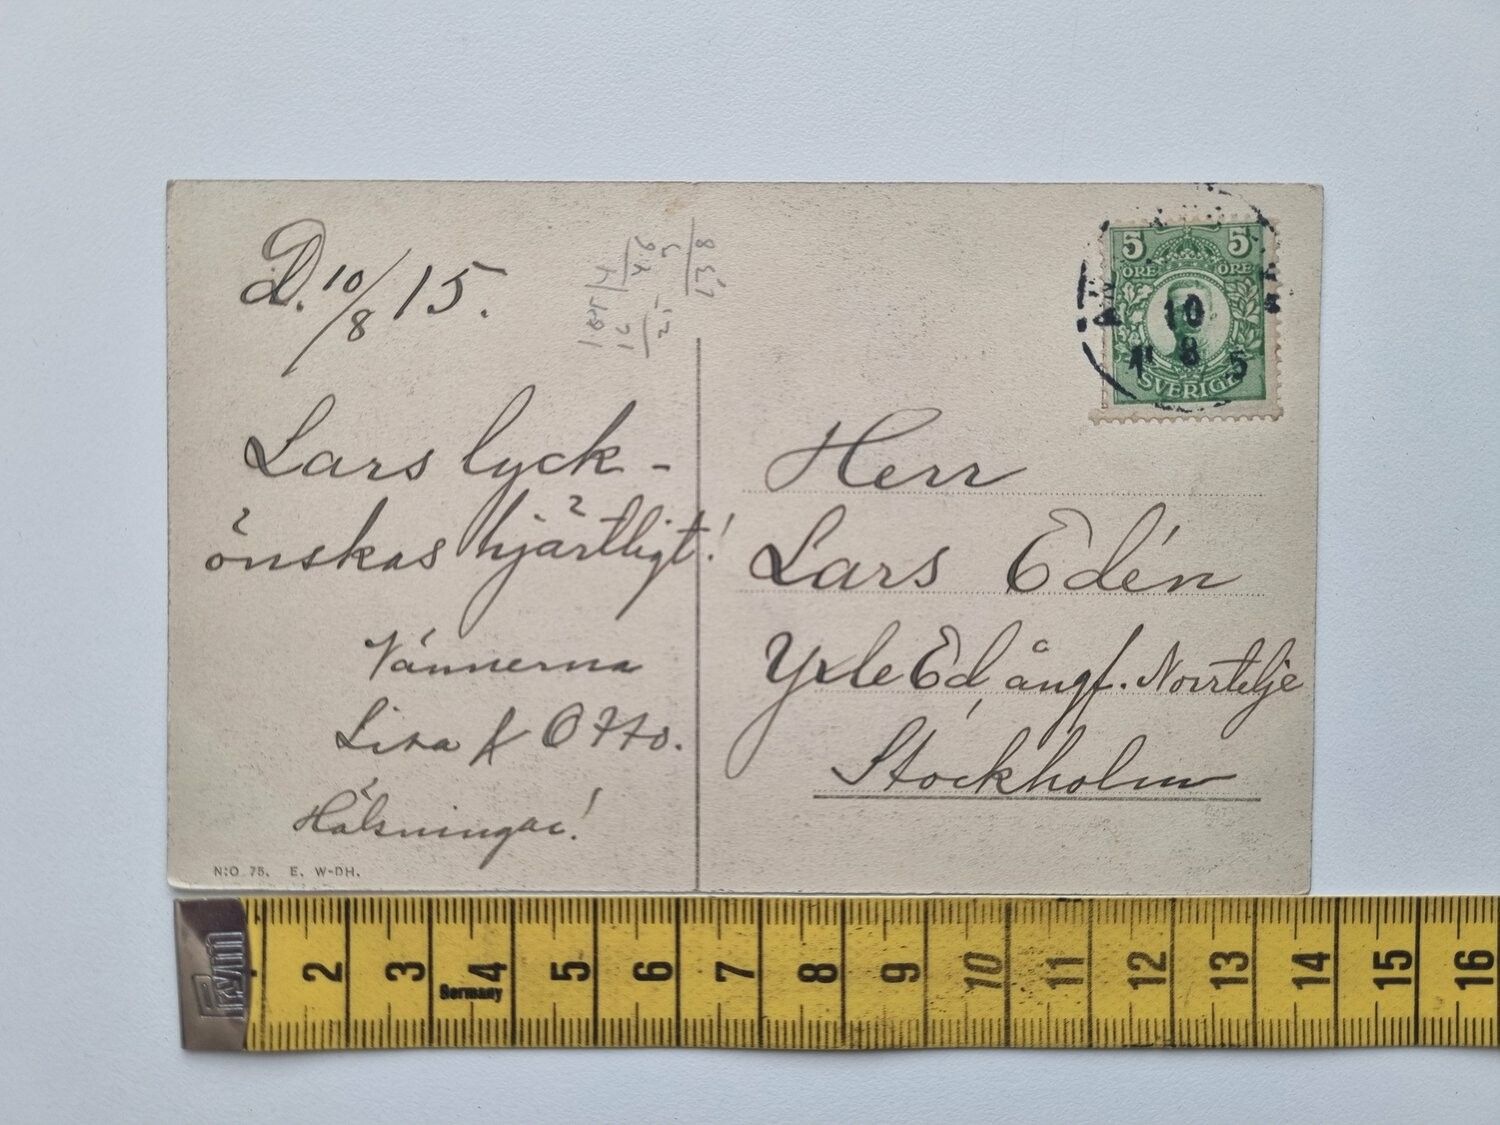 D. 10/8 15.
Lars lyck-
önskas hjärtligt!
Vännerna
Lisa & Otto.
Hälsningar!
N:O 75. E. W-DH.
5 5
ÖRE ÖRE
SVERIGE
10
8
5
Herr
Lars Edén
Yxle Ed, ångf. Norrtelje
Stockholm
Prym
2 3 4 5 6 7 8 9 10 11 12 13 14 15 16
Germany